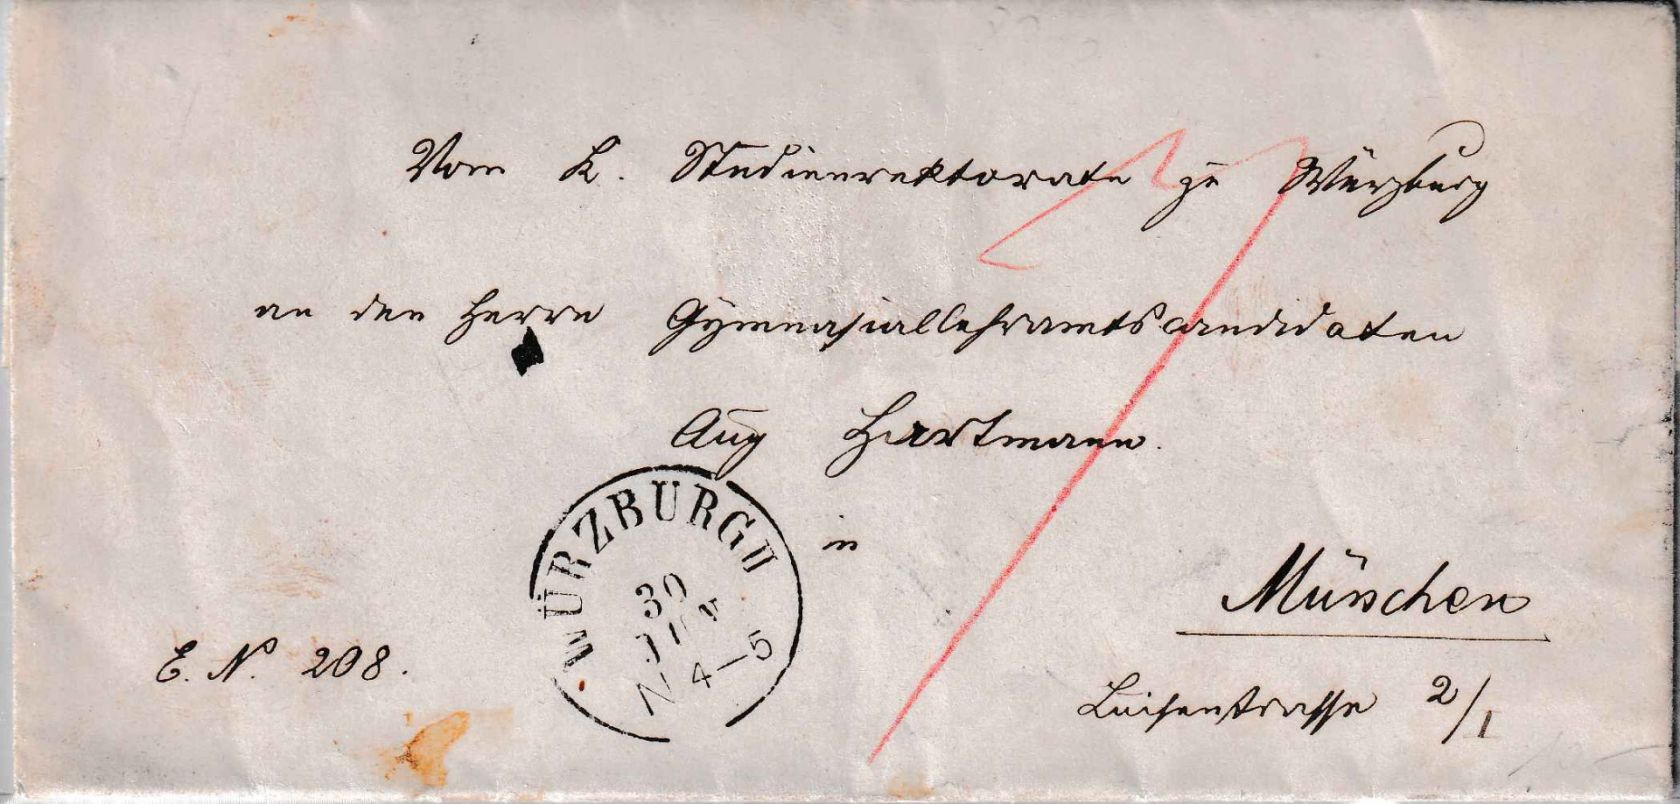 Vom K. Studienrektorate zu Würzburg
an den Herrn Gymnasiallehramtscandidaten
Aug Hartmann.
in
München
Luisenstrasse 2/I
E. No. 208.
WÜRZBURG II
30
N 4–5